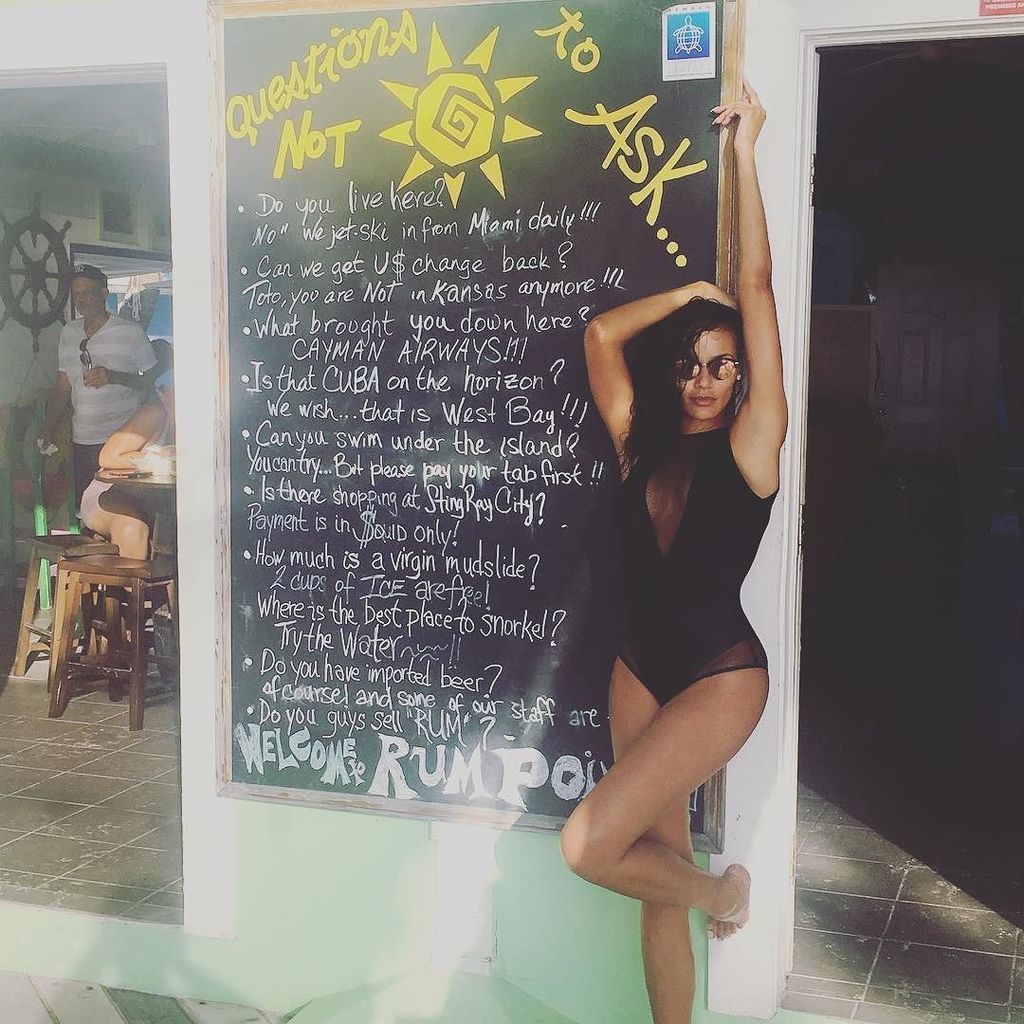 Questions to
Not Ask...
• Do you live here?
"No" we jet-ski in from Miami daily!!!
• Can we get U$ change back?
Toto, you are Not in Kansas anymore!!!
• What brought you down here?
CAYMAN AIRWAYS!!!
• Is that CUBA on the horizon?
we wish... that is West Bay!!!
• Can you swim under the island?
You can try... But please pay your tab first!!
• Is there shopping at Sting Ray City?
Payment is in $QUID only!
• How much is a virgin mudslide?
2 cups of ICE are free!
Where is the best place to snorkel?
Try the Water~~!!
• Do you have imported beer?
of course! and some of our staff are
• Do you guys sell "RUM"?
WELCOME to RUM Poi